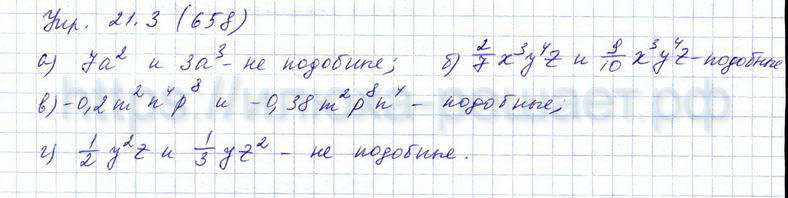 Упр. 21.3 (658)
а) 7a² и 3a³ - не подобные; б) 2/7 x³y⁴z и 9/10 x³y⁴z - подобные
в) -0,2m²n⁴p⁸ и -0,38m²p⁸n⁴ - подобные;
г) 1/2 y²z и 1/3 yz² - не подобные.